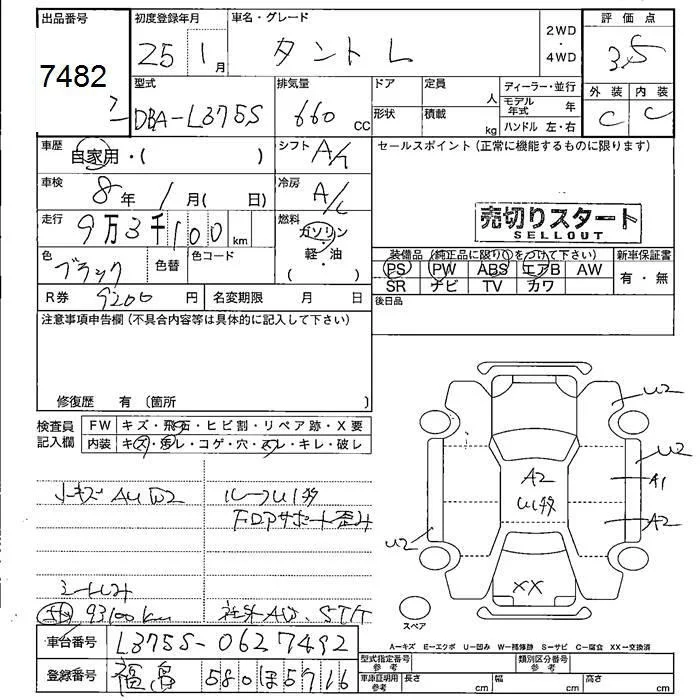 出品番号 初度登録年月 車名・グレード 2WD・4WD 評価点
7482 25 1月 タント L 3.5
型式 排気量 ドア 定員 人 ディーラー・並行 外装 内装
DBA-L375S 660 CC 形状 積載 kg モデル年式 年 C C
ハンドル 左・右
車歴 自家用・( ) シフト A/T セールスポイント (正常に機能するものに限ります)
車検 8年 1月( 日) 冷房 A/C
走行 9万3千100km 燃料 ガソリン・軽・油 ( )
売切りスタート
SELLOUT
色 ブラック 色替 色コード
装備品 (純正品に限り○をつけて下さい) 新車保証書
PS PW ABS エアB AW 有・無
SR ナビ TV カワ
R券 9200円 名変期限 月 日 後日品
注意事項申告欄 (不具合内容等は具体的に記入して下さい)
修復歴 有 (箇所 )
検査員記入欄 FW キズ・飛石・ヒビ割・リペア跡・X要
内装 キズ・汚レ・コゲ・穴・スレ・キレ・破レ
ルーフU1多
FDアサポート歪み
93100km
U2
U2
A1
A2
A2
U1多
U2
XX
スペア
A-キズ E-エクボ U-凹み W-補修跡 S-サビ C-腐食 XX-交換済
車台番号 L375S-0627492
登録番号 福島 580 ほ 5716
型式指定番号 参考 類別区分番号 参考
車庫証明用 参考 長さ cm 幅 cm 高さ cm